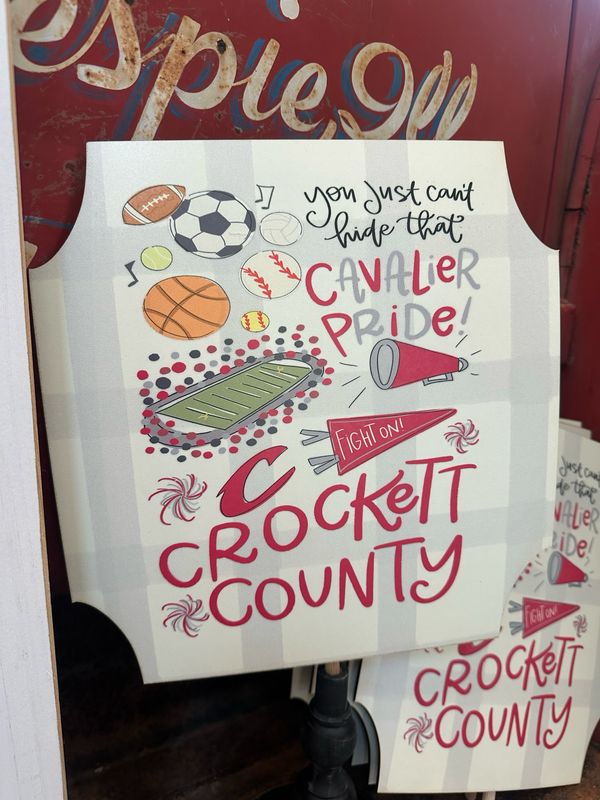 you just can't
hide that
CAVALIER
PRIDE!
FIGHT ON!
C
CROCKETT
COUNTY
just can't
de that
VALIER
RIDE!
FIGHT ON!
CROCKETT
COUNTY